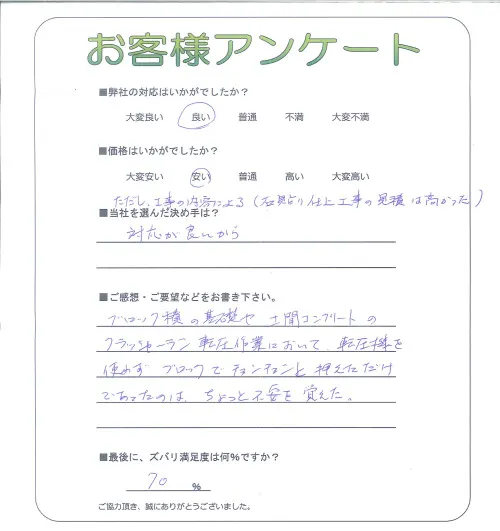 お客様アンケート
■弊社の対応はいかがでしたか？
大変良い 良い 普通 不満 大変不満
■価格はいかがでしたか？
大変安い 安い 普通 高い 大変高い
ただし、工事の内容による（石貼り仕上工事の見積は高かった）
■当社を選んだ決め手は？
対応が良いから
■ご感想・ご要望などをお書き下さい。
ブロック積の基礎や土間コンクリートの
クラッシャーラン転圧作業において、転圧機を
使わず ブロックでチョンチョンと押えただけ
であったのは、ちょっと不安を覚えた。
■最後に、ズバリ満足度は何%ですか？
70 %
ご協力頂き、誠にありがとうございました。